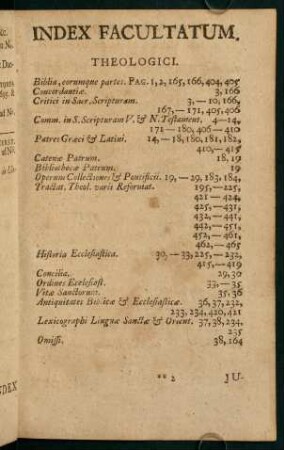 INDEX FACULTATUM.
THEOLOGICI.
Biblia, eorumque partes. PAG. 1, 2, 165, 166, 404, 405
Concordantiæ. 3, 166
Critici in Sacr. Scripturam. 3, — 10, 166,
167, — 171, 405, 406
Comm. in S. Scripturam V. & N. Testament. 4—14,
171 — 180, 406 — 410
Patres Græci & Latini. 14, — 18, 180, 181, 182,
410, — 415
Catenæ Patrum. 18, 19
Bibliothecæ Patrum. 19
Operum Collectiones & Pontificii. 19, — 29, 183, 184,
Tractat. Theol. varii Reformat. 195, — 225,
421 — 424,
425, — 431,
432, — 441,
442, — 451,
452, — 461,
462, — 465
Historia Ecclesiastica. 30, — 33, 225, — 232,
415, — 419
Concilia. 29, 30
Ordines Ecclesiast. 33, — 35
Vitæ Sanctorum. 35, 36
Antiquitates Biblicæ & Ecclesiasticæ. 36, 37, 232,
233, 234, 420, 421
Lexicographi Linguæ Sanctæ & Orient. 37, 38, 234,
235
Omissi. 38, 164
** 2 JU-
NDEX